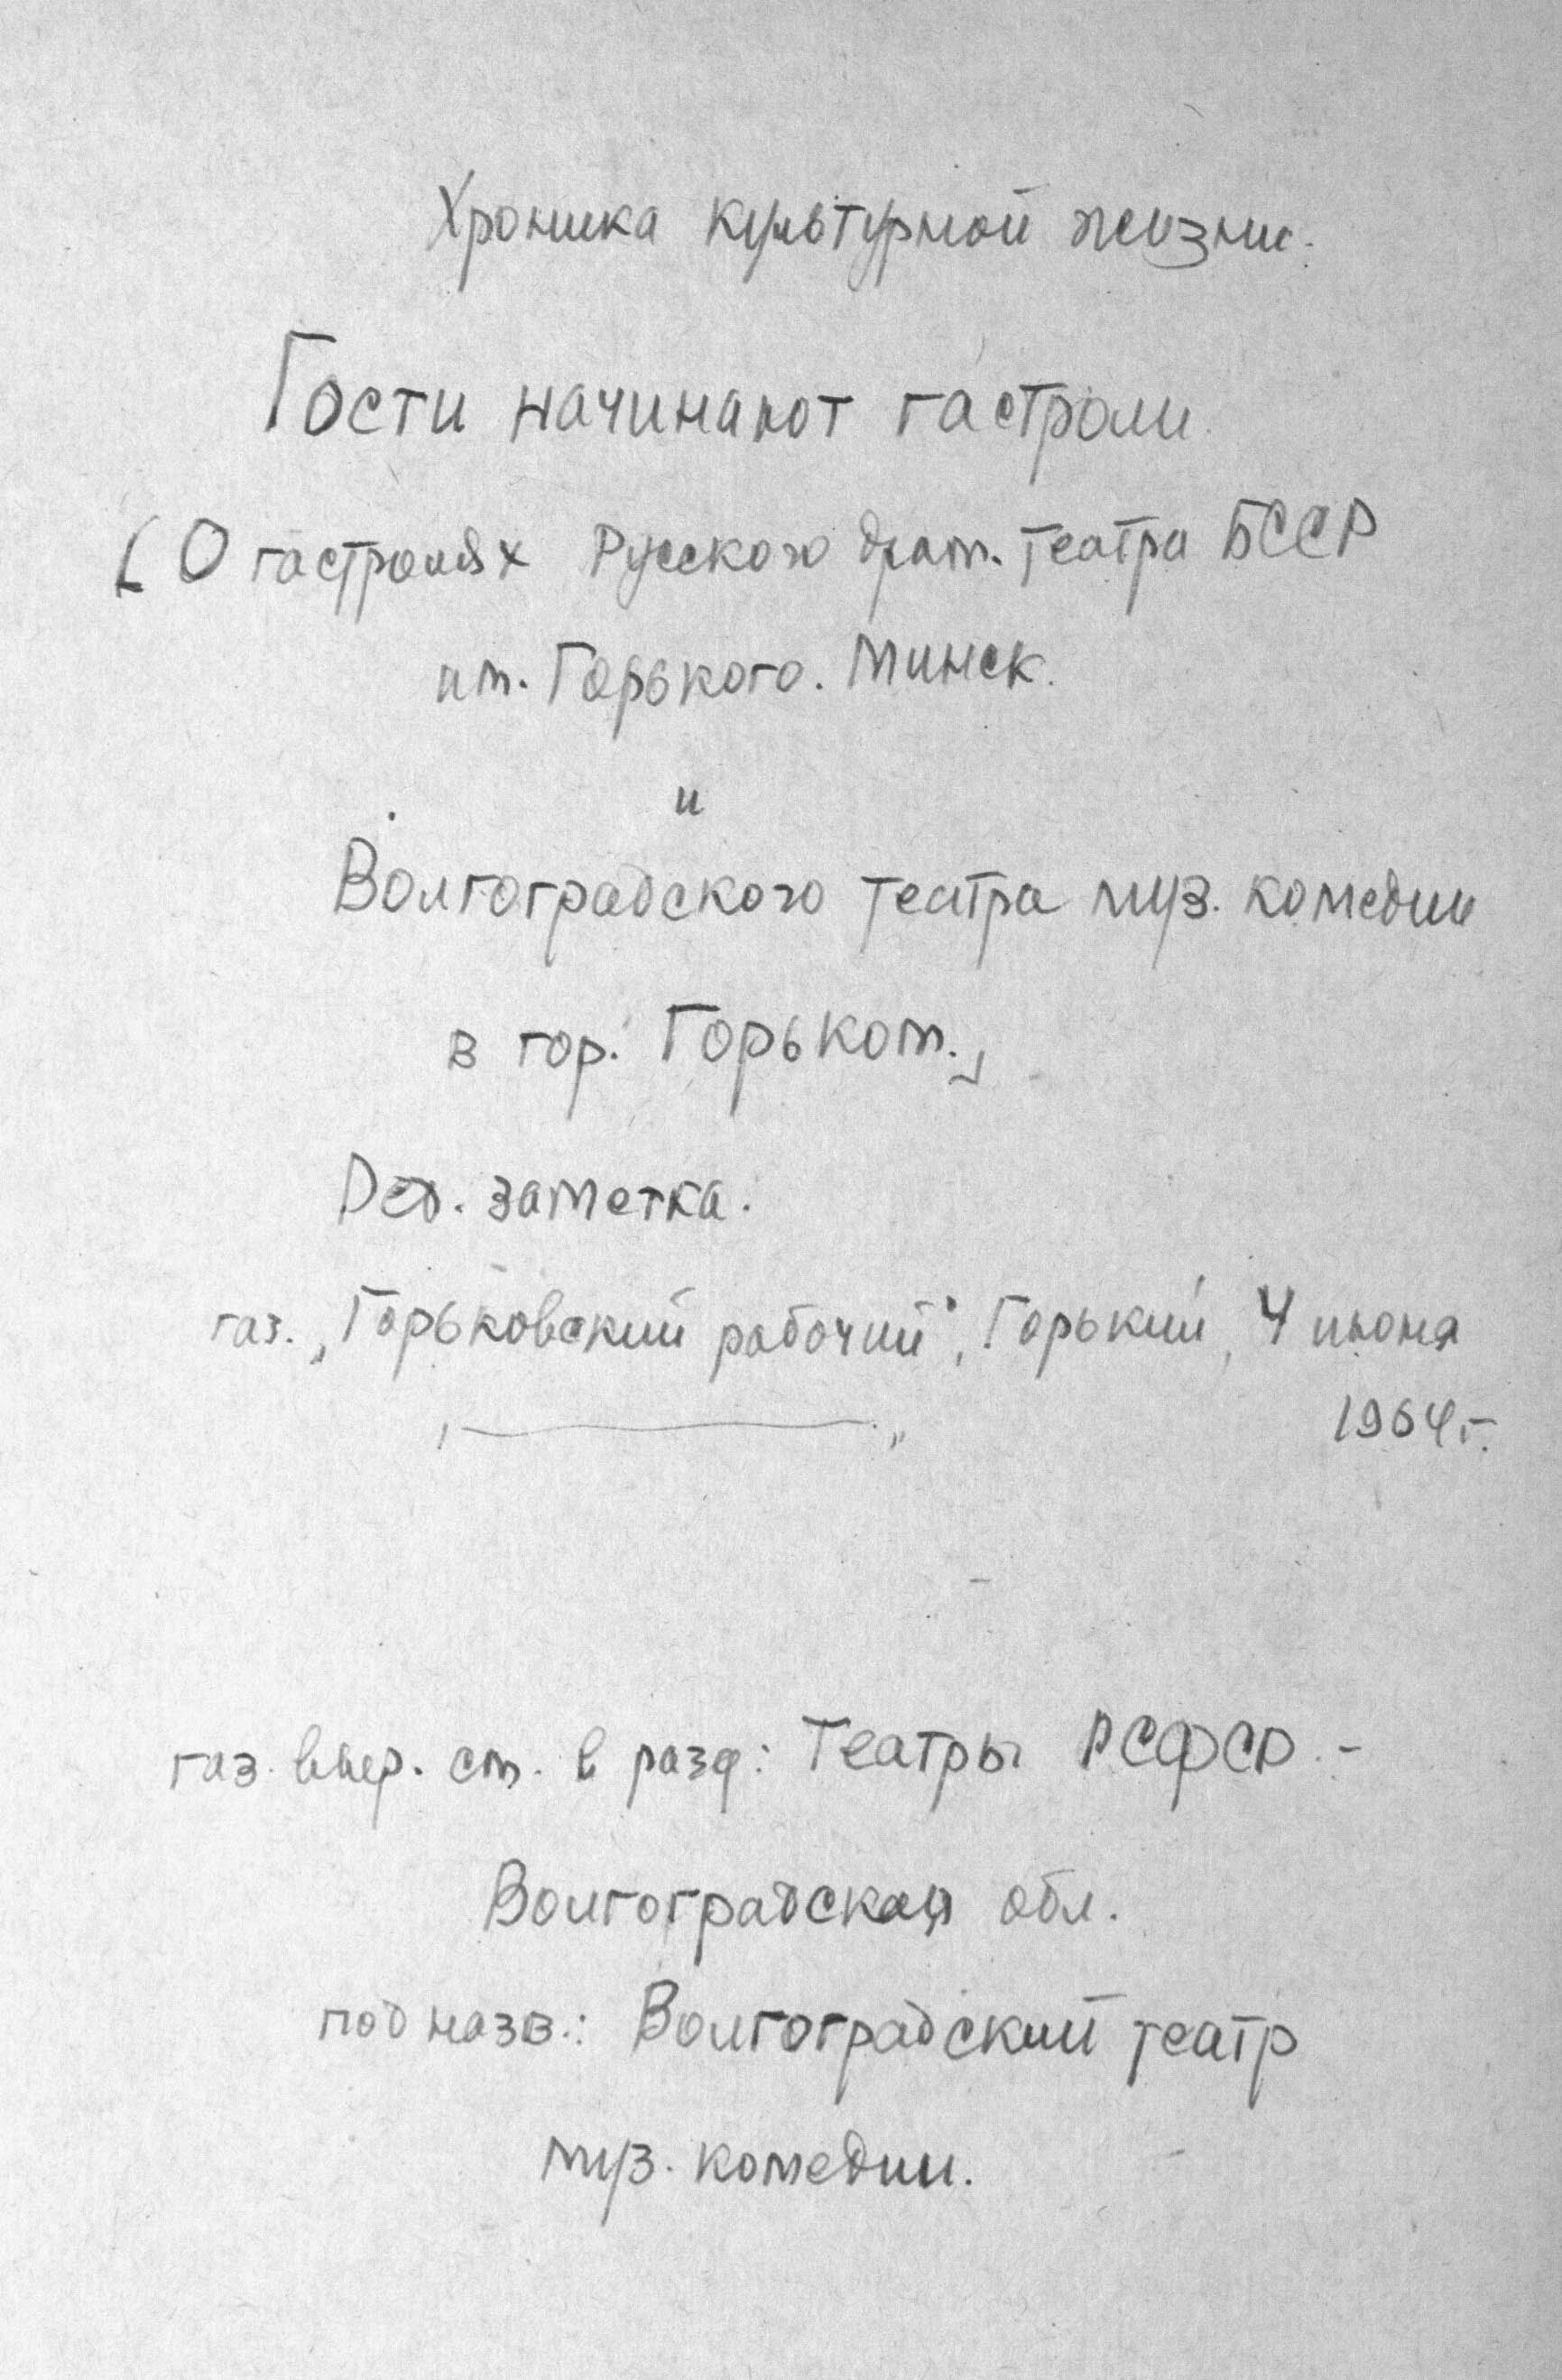 Хроника культурной жизни.
Гости начинают гастроли.
[О гастролях Русского драм. театра БССР
им. Горького. Минск.
и
Волгоградского театра муз. комедии
в гор. Горьком.]
Ред. заметка.
газ. „Горьковский рабочий“, Горький, 4 июня
1964 г.
газ. ст. в разд: Театры РСФСР. -
Волгоградская обл.
под назв.: Волгоградский театр
муз. комедии.